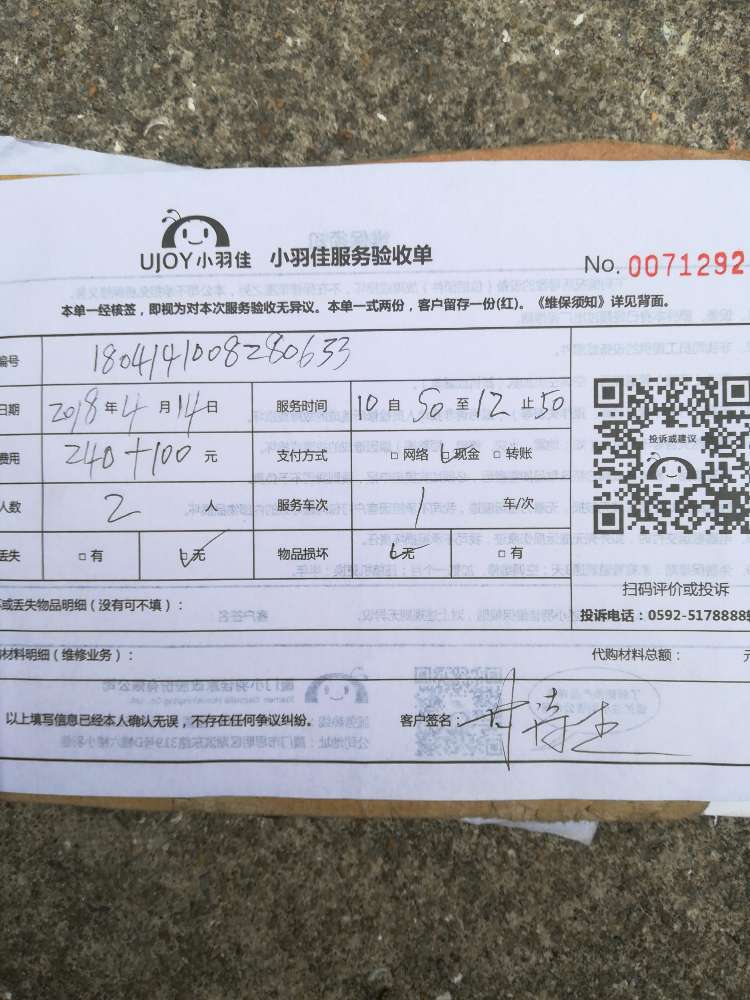 UJOY小羽佳 小羽佳服务验收单 No. 0071292
本单一经核签，即视为对本次服务验收无异议。本单一式两份，客户留存一份(红)。《维保须知》详见背面。
编号 1804141008280633
日期 2018年4月14日 服务时间 10自50至12止50
费用 240+100元 支付方式 □网络 □现金 □转账
人数 2人 服务车次 1 车/次
丢失 □有 □无 物品损坏 □无 □有
投诉或建议
扫码评价或投诉
或丢失物品明细（没有可不填）： 投诉电话：0592-5178888
材料明细（维修业务）： 代购材料总额：
以上填写信息已经本人确认无误，不存在任何争议纠纷。 客户签名：